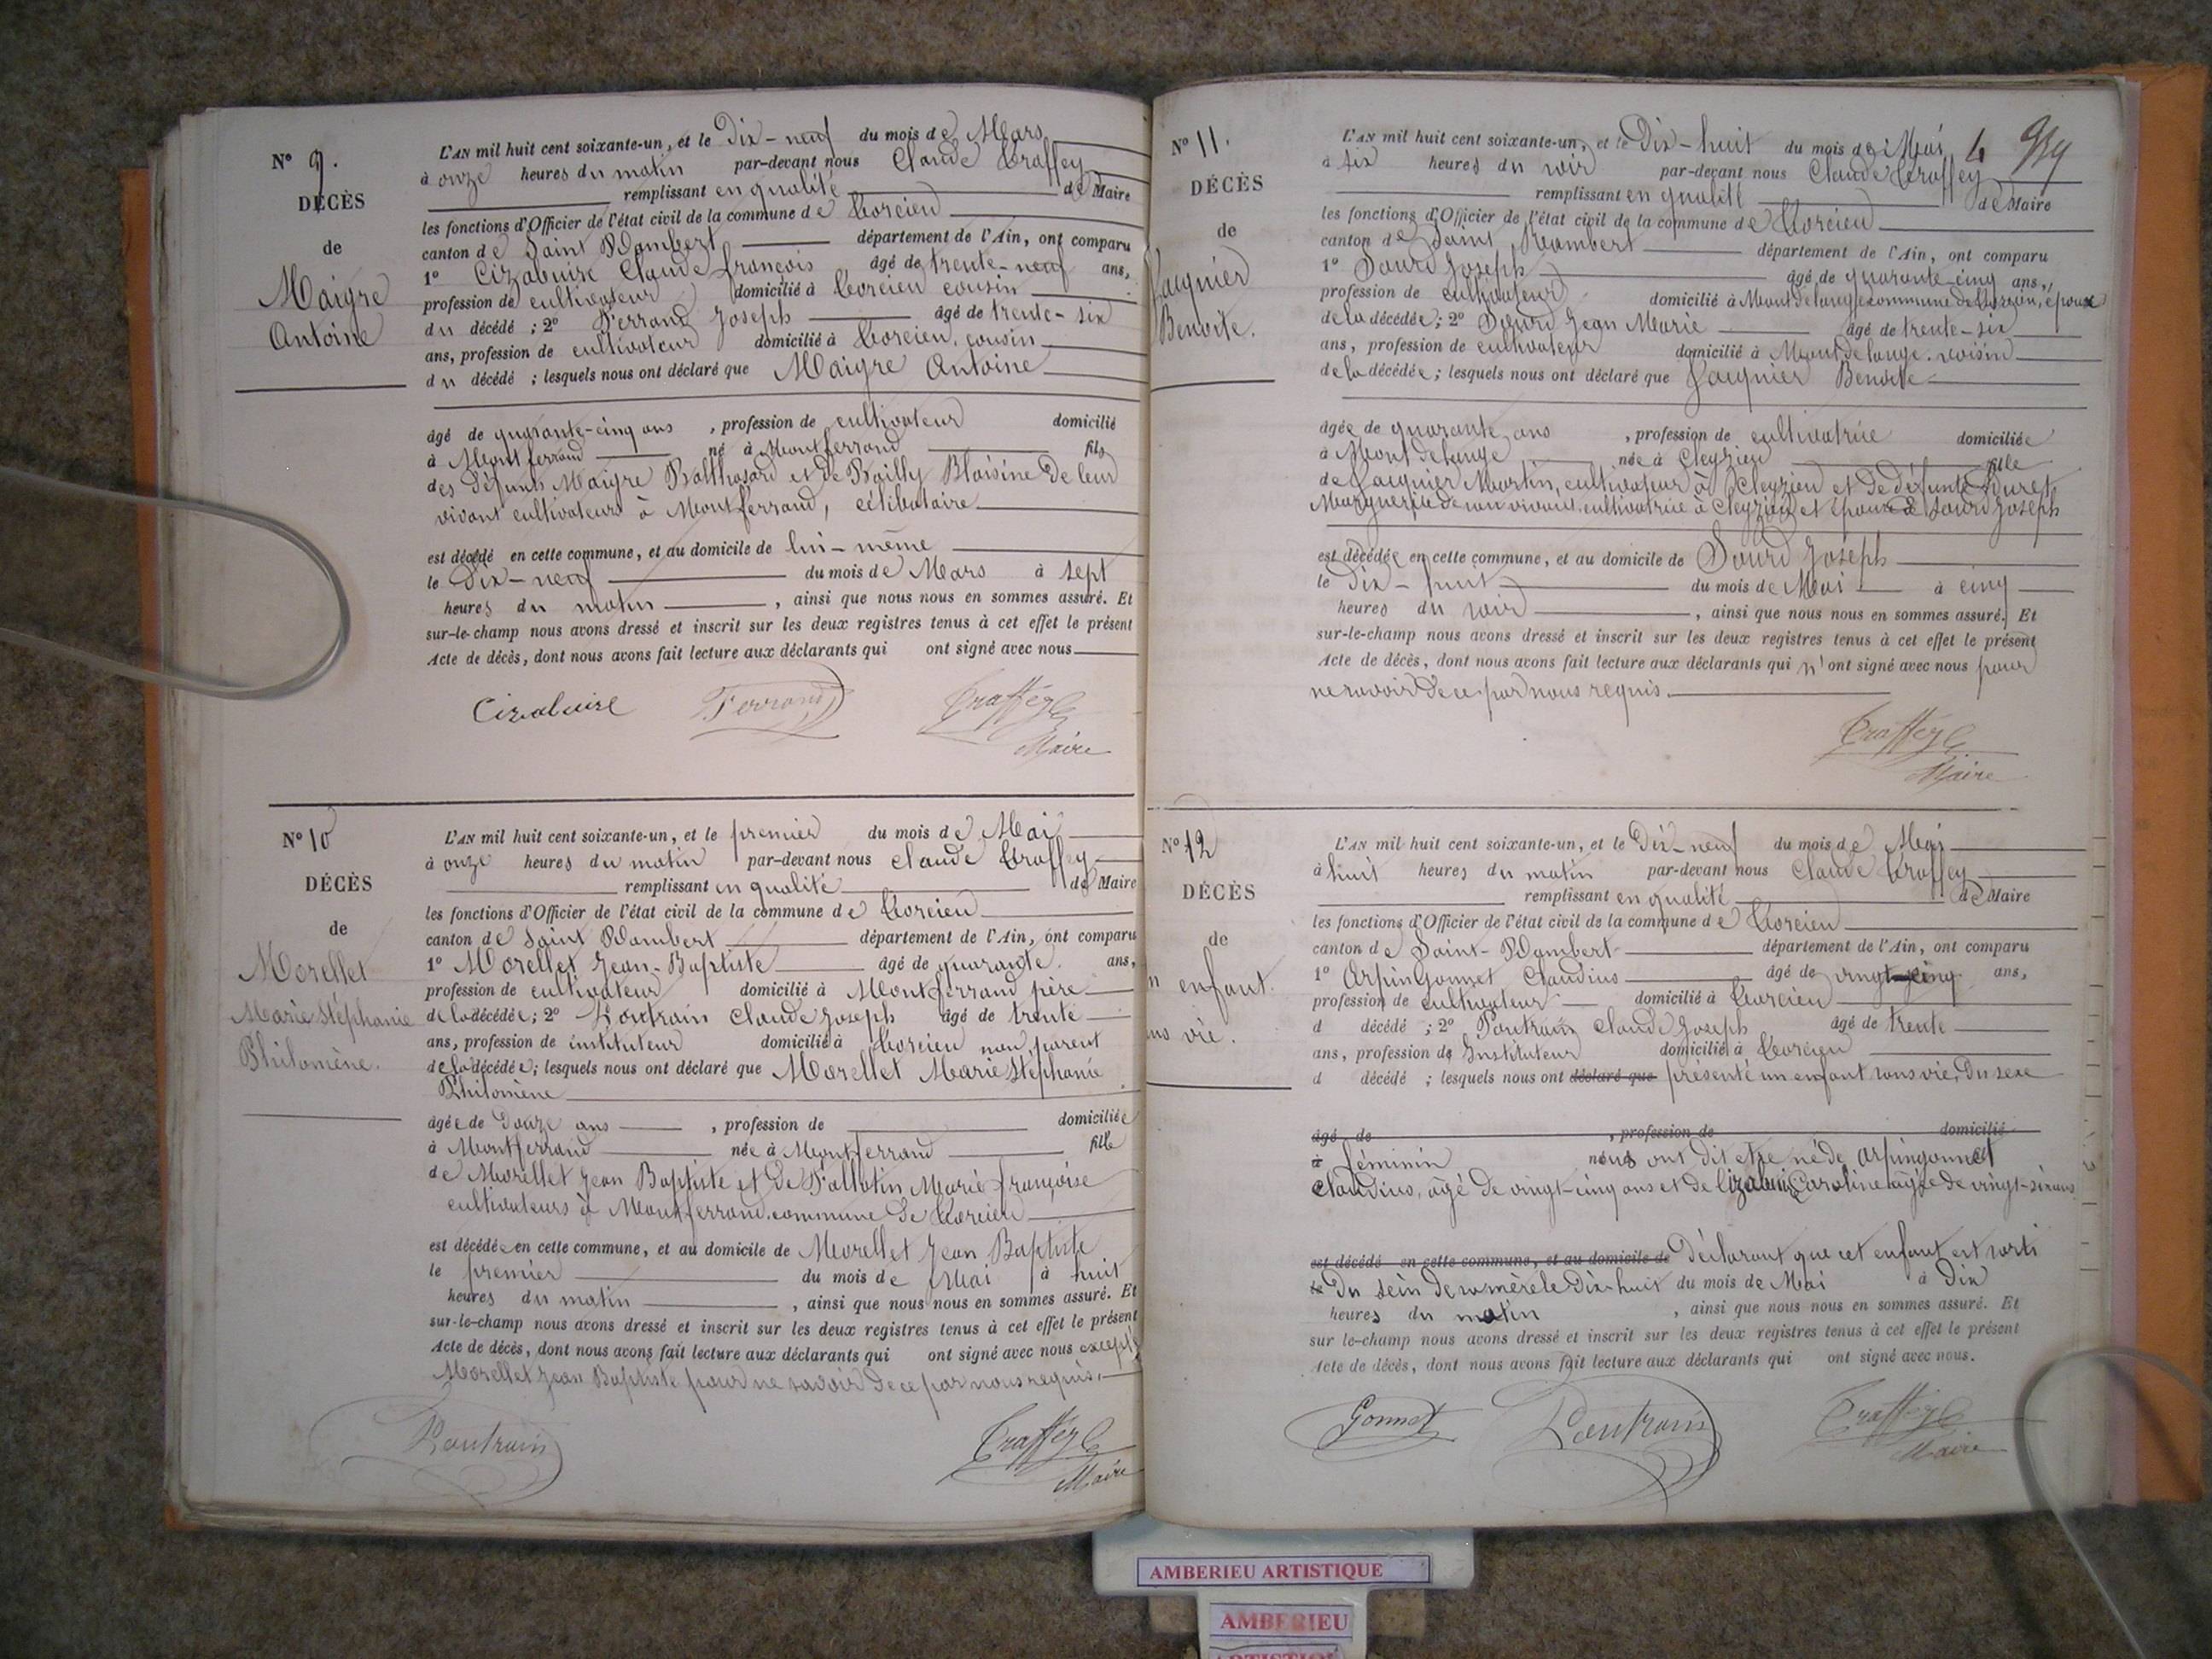 N° 9.
DÉCÈS
de
Maigre
Antoine
L'AN mil huit cent soixante-un, et le Dix-neuf du mois de Mars
à onze heures du matin par-devant nous Claude Traffey
remplissant en qualité de Maire
les fonctions d'Officier de l'état civil de la commune de Torcieu
canton de Saint Rambert département de l'Ain, ont comparu
1° Cizabuire Claude françois âgé de trente-neuf ans,
profession de cultivateur domicilié à Torcieu cousin
du décédé ; 2° Ferrand Joseph âgé de trente-six
ans, profession de cultivateur domicilié à Torcieu, cousin
du décédé ; lesquels nous ont déclaré que Maigre Antoine
âgé de quarante-cinq ans , profession de cultivateur domicilié
à Montferrand né à Montferrand fils
des défunts Maigre Balthasard et de Bailly Blaisine de leur
vivant cultivateurs à Montferrand, célibataire
est décédé en cette commune, et au domicile de lui-même
le Dix-neuf du mois de Mars à sept
heures du matin , ainsi que nous nous en sommes assuré. Et
sur-le-champ nous avons dressé et inscrit sur les deux registres tenus à cet effet le présent
Acte de décès, dont nous avons fait lecture aux déclarants qui ont signé avec nous
Cizabuire Ferrand Traffey C
Maire
N° 10
DÉCÈS
de
Morellet
Marie Stéphanie
Philomène.
L'AN mil huit cent soixante-un, et le premier du mois de Mai
à onze heures du matin par-devant nous Claude Traffey
remplissant en qualité de Maire
les fonctions d'Officier de l'état civil de la commune de Torcieu
canton de Saint Rambert département de l'Ain, ont comparu
1° Morellet Jean-Baptiste âgé de quarante ans,
profession de cultivateur domicilié à Montferrand père
de la décédée ; 2° Poutrain Claude Joseph âgé de trente
ans, profession de instituteur domicilié à Torcieu non parent
de la décédée ; lesquels nous ont déclaré que Morellet Marie Stéphanie
Philomène
âgée de Douze ans , profession de domiciliée
à Montferrand née à Montferrand fille
de Morellet Jean Baptiste et de Marie françoise
cultivateurs à Montferrand commune de Torcieu
est décédée en cette commune, et au domicile de Morellet Jean Baptiste
le premier du mois de Mai à huit
heures du matin , ainsi que nous nous en sommes assuré. Et
sur-le-champ nous avons dressé et inscrit sur les deux registres tenus à cet effet le présent
Acte de décès, dont nous avons fait lecture aux déclarants qui ont signé avec nous excepté
Morellet Jean Baptiste pour ne savoir de ce par nous requis.
Poutrain Traffey C
Maire
N° 11.
DÉCÈS
de
Jacquier
Benoite.
L'AN mil huit cent soixante-un, et le Dix-huit du mois de Mai
à six heures du soir par-devant nous Claude Traffey
remplissant en qualité de Maire
les fonctions d'Officier de l'état civil de la commune de Torcieu
canton de Saint Rambert département de l'Ain, ont comparu
1° Sourd Joseph âgé de quarante-cinq ans,
profession de cultivateur domicilié à Mont de lange commune de Torcieu, époux
de la décédée ; 2° Sourd Jean Marie âgé de trente-six
ans, profession de cultivateur domicilié à Mont de lange, voisin
de la décédée ; lesquels nous ont déclaré que Jacquier Benoite
âgée de quarante ans , profession de cultivatrice domiciliée
à Mont de lange née à Cleyzieu fille
de Jacquier Martin, cultivateur à Cleyzieu et de défunte Buret
Marguerite de son vivant cultivatrice à Cleyzieu et épouse de Sourd Joseph
est décédée en cette commune, et au domicile de Sourd Joseph
le Dix-huit du mois de Mai à cinq
heures du soir , ainsi que nous nous en sommes assuré. Et
sur-le-champ nous avons dressé et inscrit sur les deux registres tenus à cet effet le présent
Acte de décès, dont nous avons fait lecture aux déclarants qui n'ont signé avec nous pour
ne savoir de ce par nous requis.
Traffey C
Maire
N° 12
DÉCÈS
de
n enfant
ns vie.
L'AN mil huit cent soixante-un, et le Dix-neuf du mois de Mai
à huit heures du matin par-devant nous Claude Traffey
remplissant en qualité de Maire
les fonctions d'Officier de l'état civil de la commune de Torcieu
canton de Saint-Rambert département de l'Ain, ont comparu
1° Arpin Gonnet Claudius âgé de vingt-cinq ans,
profession de cultivateur domicilié à Torcieu
d décédé ; 2° Poutrain Claude Joseph âgé de trente
ans, profession de Instituteur domicilié à Torcieu
d décédé ; lesquels nous ont déclaré que présenté un enfant sans vie, du sexe
âgé de , profession de domicilié
à féminin nous ont dit etre né de Arpingonnet
Claudius, âgé de vingt-cinq ans et de Cizabuire Caroline âgée de vingt-six ans
est décédé en cette commune, et au domicile de Déclarant que cet enfant est sorti
le Du sein de sa mère le Dix-huit du mois de Mai à Dix
heures du matin , ainsi que nous nous en sommes assuré. Et
sur le-champ nous avons dressé et inscrit sur les deux registres tenus à cet effet le présent
Acte de décès, dont nous avons fait lecture aux déclarants qui ont signé avec nous.
Gonnet Poutrain Traffey C
Maire
AMBERIEU ARTISTIQUE
AMBERIEU
ARTISTIQUE